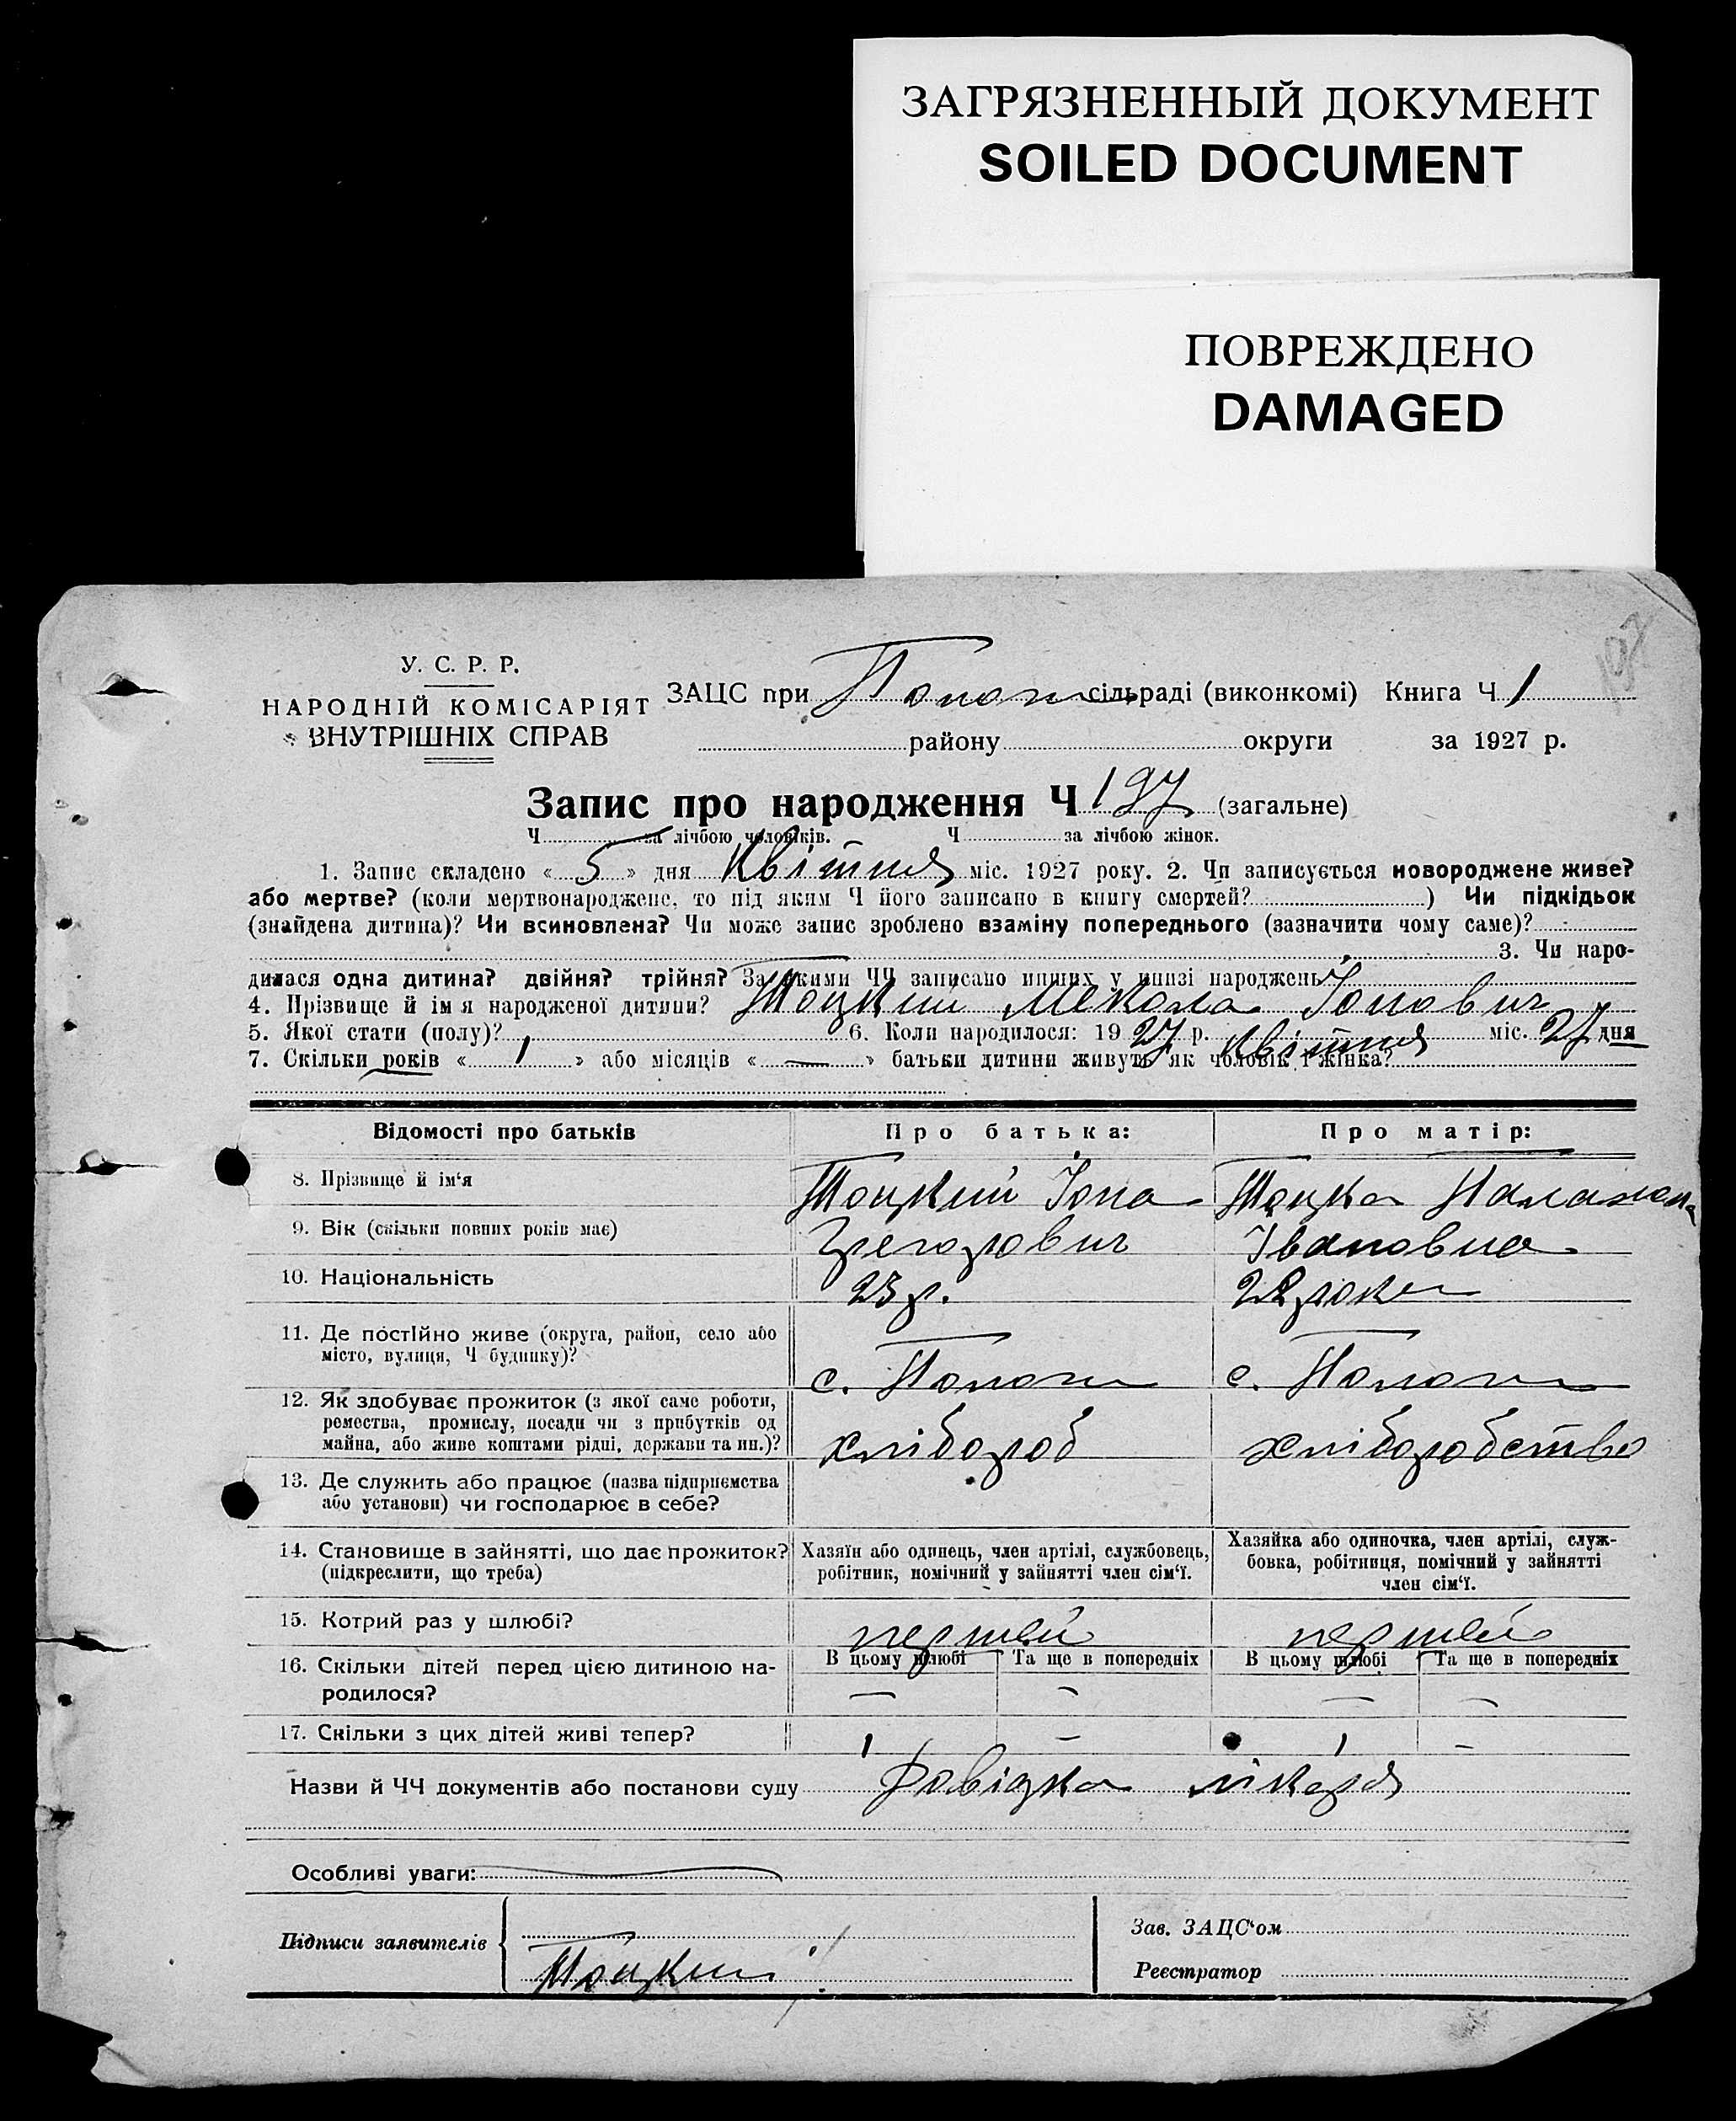 ЗАГРЯЗНЕННЫЙ ДОКУМЕНТ
SOILED DOCUMENT
ПОВРЕЖДЕНО
DAMAGED
197
У. С. Р. Р.
НАРОДНІЙ КОМІСАРІЯТ
ВНУТРІШНІХ СПРАВ
ЗАЦС при Пологи сільраді (виконкомі) Книга Ч 1
району округи за 1927 р.
Запис про народження Ч 197 (загальне)
Ч за лічбою чоловіків. Ч за лічбою жінок.
1. Запис складено « 5 » дня Квітня міс. 1927 року. 2. Чи записується новороджене живе?
або мертве? (коли мертвонароджене, то під яким Ч його записано в книгу смертей? ) Чи підкідьок
(знайдена дитина)? Чи всиновлена? Чи може запис зроблено взаміну попереднього (зазначити чому саме)?
3. Чи наро-
дилася одна дитина? двійня? трійня? За якими ЧЧ записано инших у книзі народжень
4. Прізвище й ім'я народженої дитини? Тоцкий Мекола Іонович
5. Якої стати (полу)? 6. Коли народилося: 19 27 р. Квітня міс. 27 дня
7. Скільки років « 1 » або місяців « — » батьки дитини живуть як чоловік і жінка?
Відомості про батьків Про батька: Про матір:
8. Прізвище й ім'я Тоцкий Іона Тоцка Палажка
9. Вік (скільки повних років має) Грегорович Івановна
10. Національність 23 р. 22 роки
11. Де постійно живе (округа, район, село або
місто, вулиця, Ч будинку)? с. Пологи с. Пологи
12. Як здобуває прожиток (з якої саме роботи,
ремества, промислу, посади чи з прибутків од
майна, або живе коштами рідні, держави та ин.)? хлібороб хліборобство
13. Де служить або працює (назва підприємства
або установи) чи господарює в себе?
14. Становище в зайнятті, що дає прожиток?
(підкреслити, що треба)
Хазяїн або одинець, член артілі, службовець,
робітник, помічний у зайнятті член сім'ї.
Хазяйка або одиночка, член артілі, служ-
бовка, робітниця, помічний у зайнятті
член сім'ї.
15. Котрий раз у шлюбі? першей першей
16. Скільки дітей перед цією дитиною на-
родилося?
В цьому шлюбі Та ще в попередніх В цьому шлюбі Та ще в попередніх
— — — —
17. Скільки з цих дітей живі тепер? 1 — 1 —
Назви й ЧЧ документів або постанови суду Довідка лікаря
Особливі уваги:
Підписи заявителів Тоцкий
Зав. ЗАЦС'ом
Реєстратор